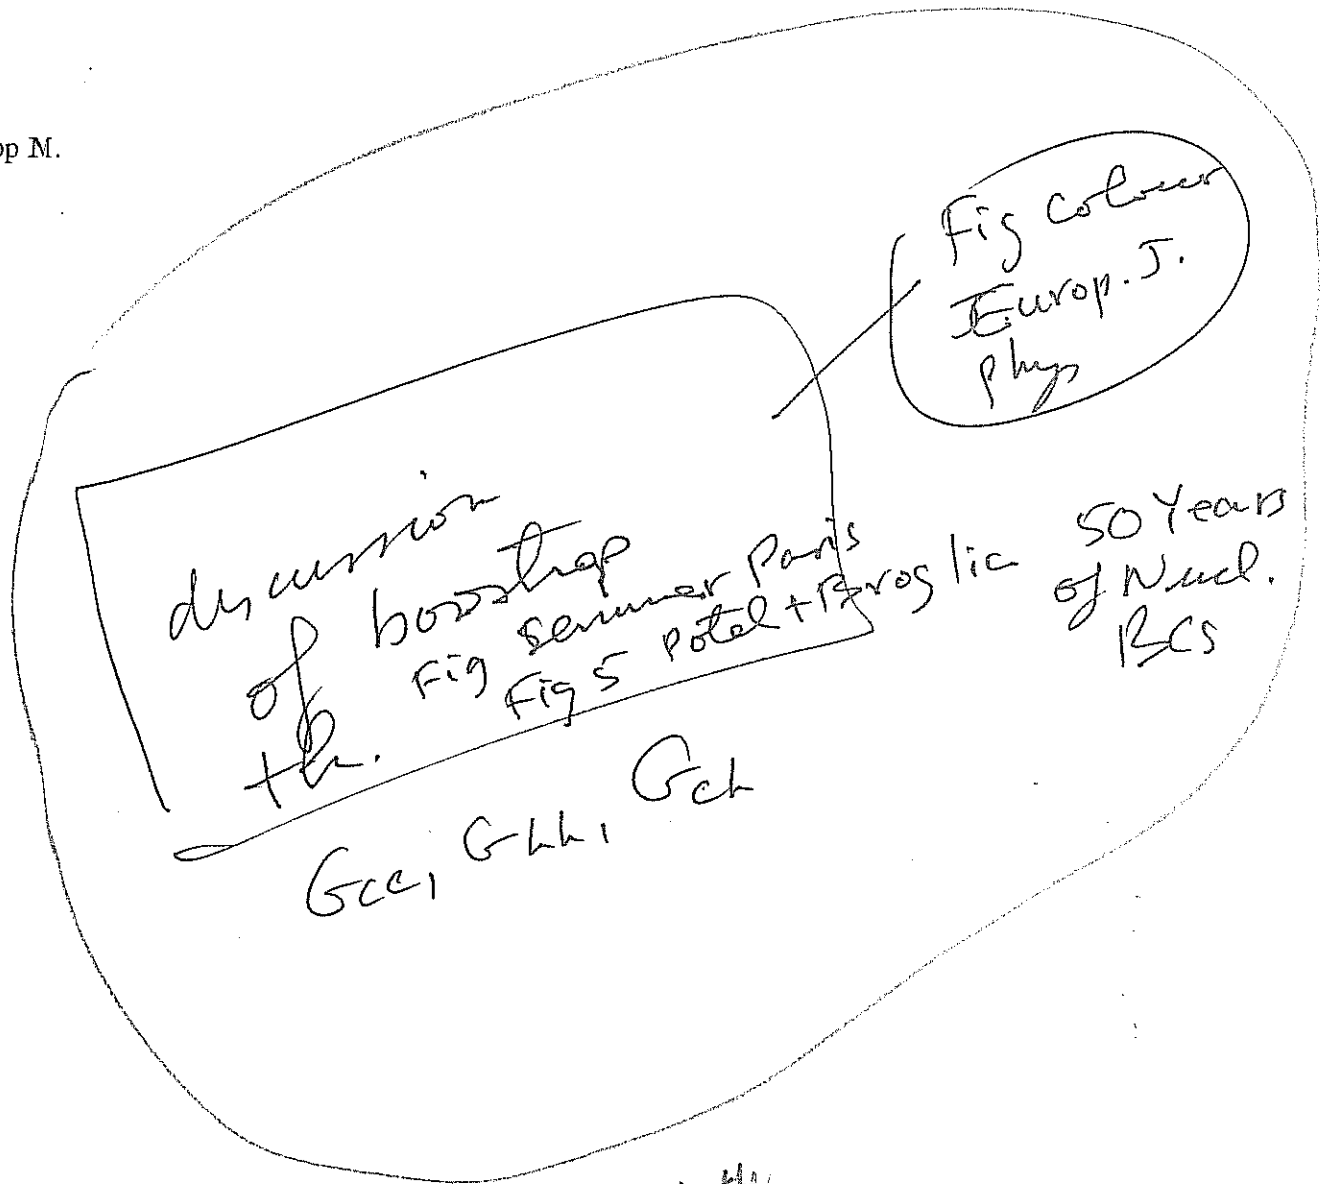 op M.
Fig colour
Europ. J.
phys
discussion
of boostrap
th.
Fig semmer Paris
Fig 5 Potel + Broglia
50 Years
of Nucl.
BCS
Gcc, Ghh, Gch